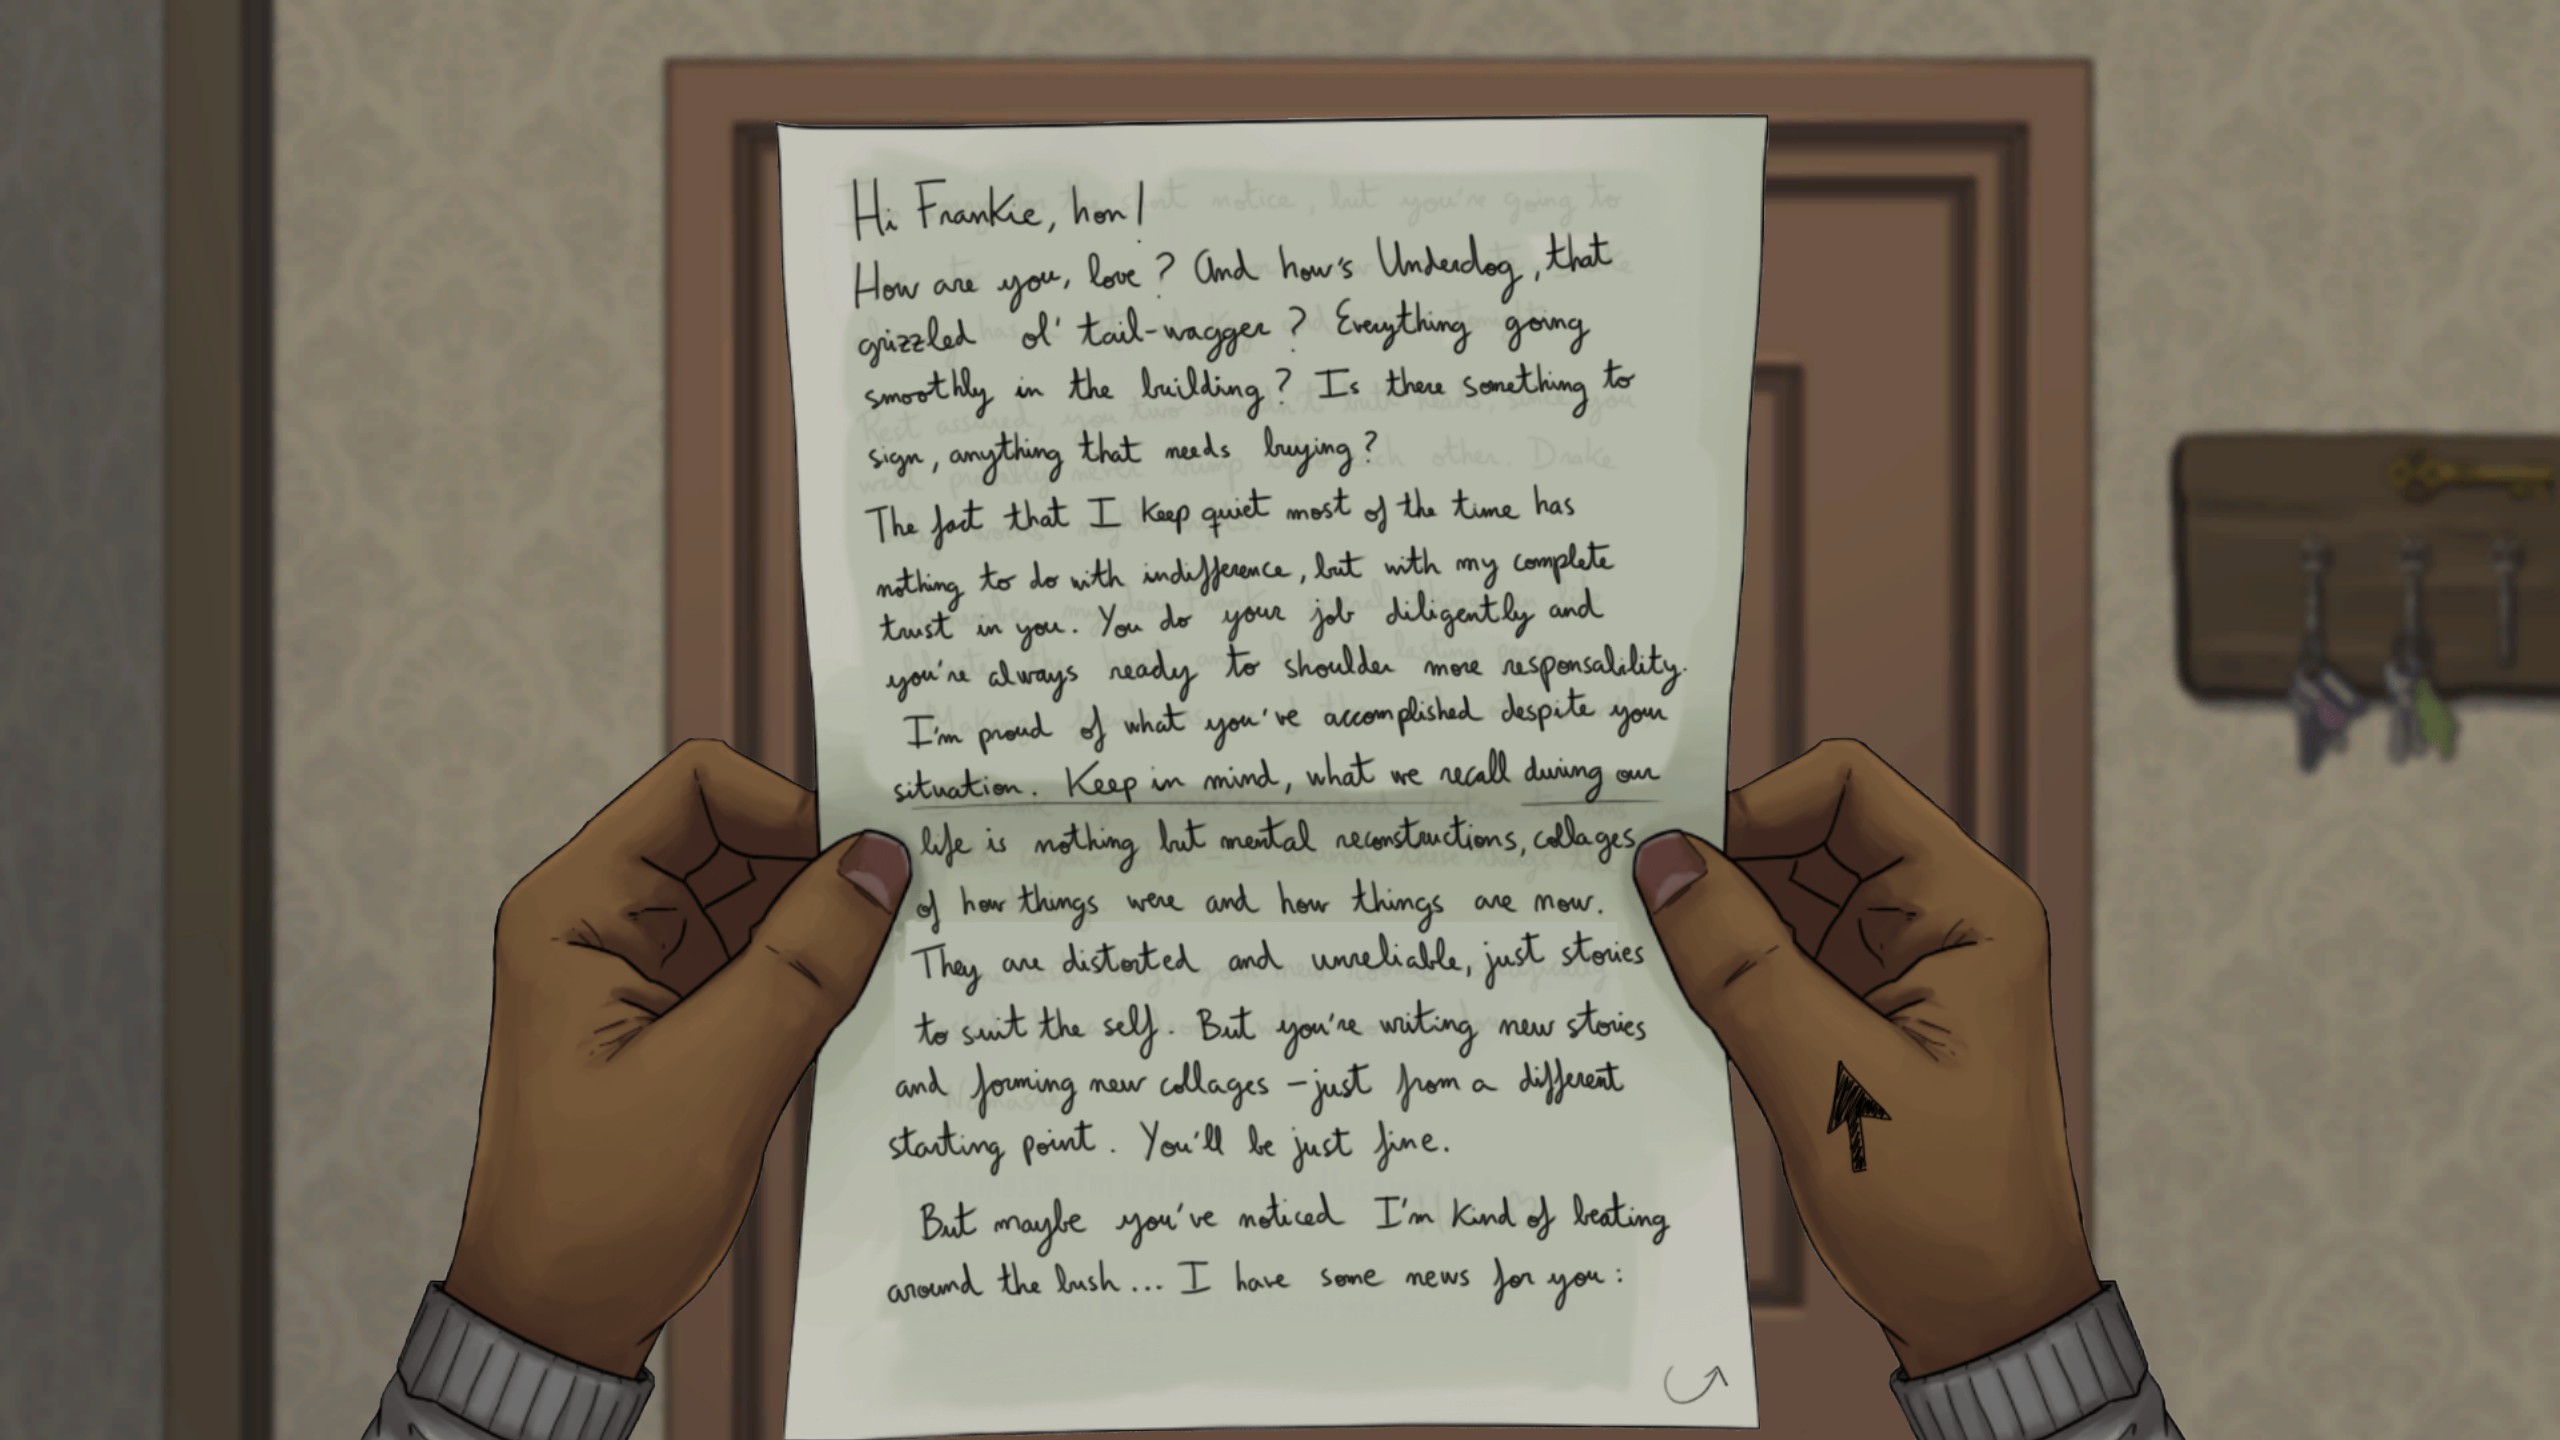 Hi Frankie, hon!
How are you, love? And how's Underdog, that
grizzled ol' tail-wagger? Everything going
smoothly in the building? Is there something to
sign, anything that needs buying?
The fact that I keep quiet most of the time has
nothing to do with indifference, but with my complete
trust in you. You do your job diligently and
you're always ready to shoulder more responsability.
I'm proud of what you've accomplished despite your
situation. Keep in mind, what we recall during our
life is nothing but mental reconstructions, collages
of how things were and how things are now.
They are distorted and unreliable, just stories
to suit the self. But you're writing new stories
and forming new collages – just from a different
starting point. You'll be just fine.
But maybe you've noticed I'm kind of beating
around the bush... I have some news for you: